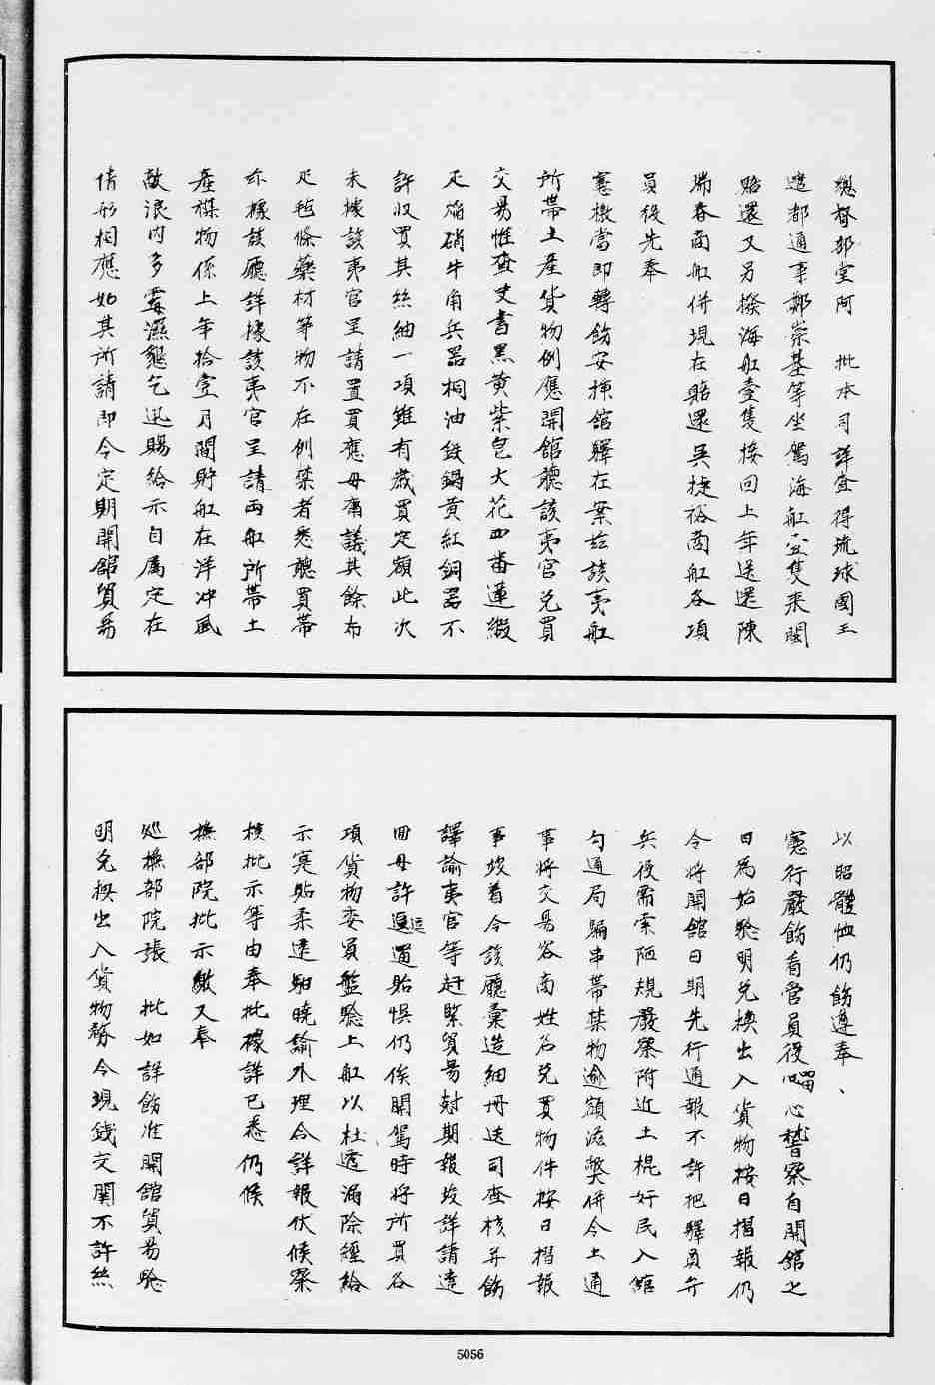 總督部堂阿　批本司詳查得琉球國王
遣都通事鄭崇基等坐駕海舡壹隻來閩
貽還又另撥海舡壹隻接回上年送還陳
瑞春商舡併現在貽還吳捷裕商舡各項
員役先奉
憲檄當即轉飭安揷館驛在案玆該夷舡
所帶土產貨物例應開館聽該夷官兌買
交易惟查史書黑黃紫皂大花四番蓮緞
疋焰硝牛角兵器桐油鉄鍋黃紅銅器不
許收買其絲紬一項雖有歲買定額此次
未據該夷官呈請置買應毋庸議其餘布
疋毡條藥材等物不在例禁者悉聽買帶
亦據該廳詳據該夷官呈請両舡所帶土
產粿物係上年拾壹月間貯舡在洋冲風
敵浪內多霉濕懇乞迅賜給示自屬定在
情形相應如其所請即令定期開館貿易
以昭體恤仍飭遵奉、
憲行嚴飭看管員役㗟心督察自開館之
日為始聽明兌換出入貨物按日摺報仍
令將開館日期先行通報不許把驛員弁
兵役需索陋規嚴察附近土棍奸民入館
勾通局騙串帶禁物逾額滋弊併令土通
事將交易各商姓名兌買物件按日摺報
事竣着令該廳彙造細冊送司查核并飭
譯諭夷官等赶緊貿易尅期報竣詳請遣
回毋許逗遛貽悞仍俟開駕時將所買各
項貨物委員盤驗上舡以杜透漏除繕給
示寔貼柔遠驛曉諭外理合詳報伏候察
核批示等由奉批據詳已悉仍候
撫部院批示繳又奉
巡撫部院張　批如詳飭准開館貿易驗
明兌換出入貨物務令現錢交関不許絲
5056